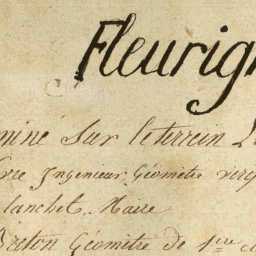 Fleurig
miné sur le terrein
Ingenieur Géometre
lanchet. Maire
Breton Géomètre de 1ere